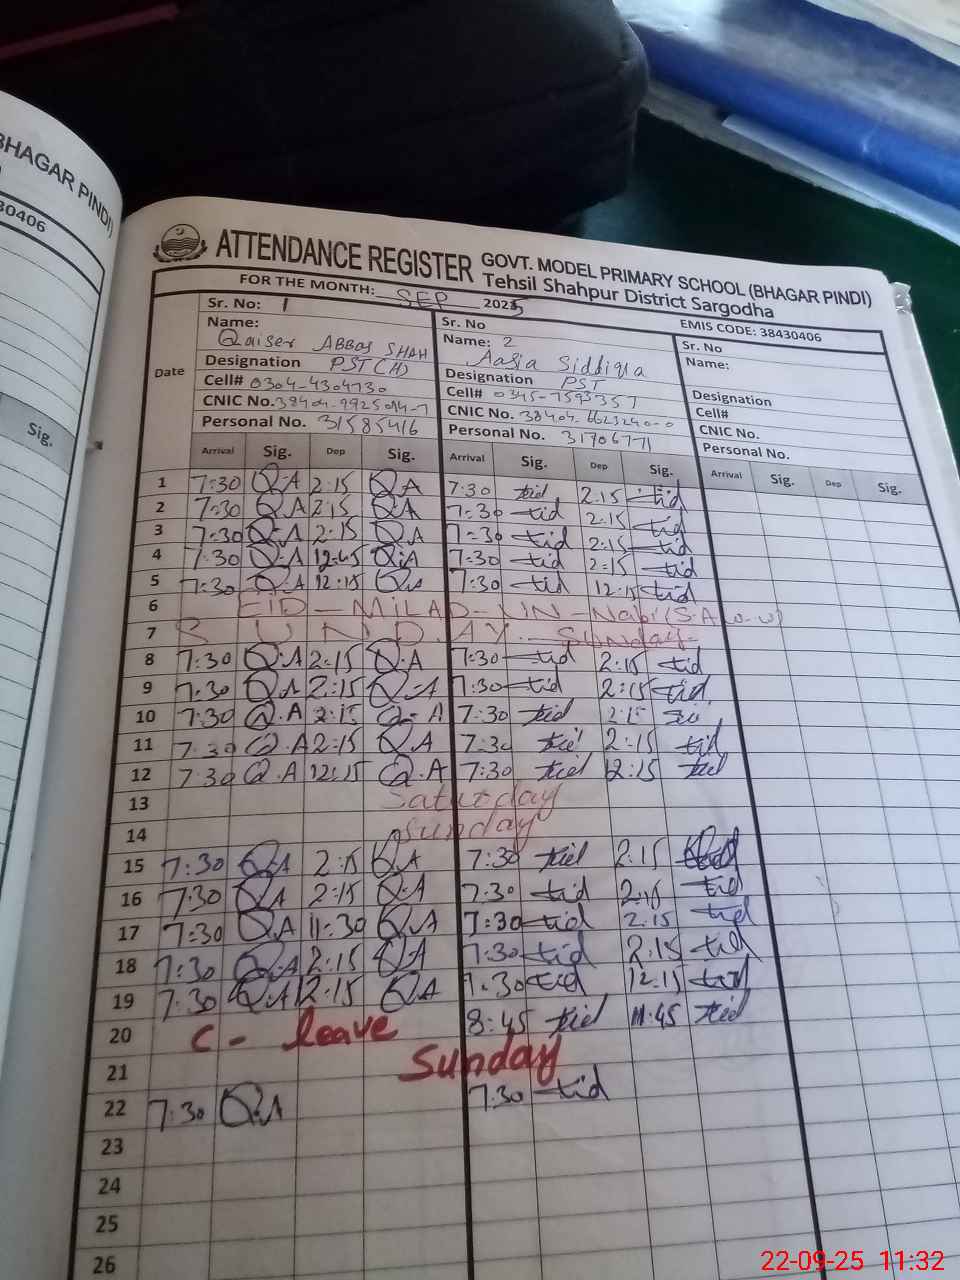 BHAGAR PINDI)
30406
Sig.
ATTENDANCE REGISTER GOVT. MODEL PRIMARY SCHOOL (BHAGAR PINDI)
Tehsil Shahpur District Sargodha
FOR THE MONTH: SEP 2025
EMIS CODE: 38430406
Date
Sr. No: 1
Name:
Qaiser ABBAS SHAH
Designation PST (H)
Cell# 0304-4304730
CNIC No. 38404-9925014-7
Personal No. 31585416
Sr. No
Name: 2
Aasia Siddiqa
Designation PST
Cell# 0345-7593357
CNIC No. 38404-6623240-0
Personal No. 31706771
Sr. No
Name:
Designation
Cell#
CNIC No.
Personal No.
Arrival Sig. Dep Sig. Arrival Sig. Dep Sig. Arrival Sig. Dep Sig.
1 7:30 Q.A 2:15 QA 7:30 tid 2:15 tid
2 7:30 QA 2:15 QA 7:30 tid 2:15 tid
3 7:30 Q.A 2:15 QA 7:30 tid 2:15 tid
4 7:30 Q.A 12:45 Q.A 7:30 tid 2:15 tid
5 7:30 Q.A 12:15 QA 7:30 tid 12:15 tid
6 EID-MiLAD-UN-Nabi (S.A.w.w)
7 SUNDAY. Sunday
8 7:30 Q.A 2:15 Q.A 7:30 tid 2:15 tid
9 7:30 Q.A 2:15 Q.A 7:30 tid 2:15 tid
10 7:30 Q.A 2:15 Q.A 7:30 tid 2:15
11 7:30 Q.A 2:15 Q.A 7:30 tid 2:15 tid
12 7:30 Q.A 12:15 Q.A 7:30 tid 12:15 tid
13 Saturday
14 Sunday
15 7:30 Q.A 2:15 Q.A 7:30 tid 2:15
16 7:30 QA 2:15 Q.A 7:30 tid 2:15 tid
17 7:30 Q.A 11:30 Q.A 7:30 tid 2:15 tid
18 7:30 Q.A 2:15 Q.A 7:30 tid 2:15 tid
19 7:30 Q.A 12:15 QA 7:30 tid 12:15 tid
20 C - leave 8:45 tid 11:45 tid
21 Sunday
22 7:30 Q.A 7:30 tid
23
24
25
26
22-09-25 11:32